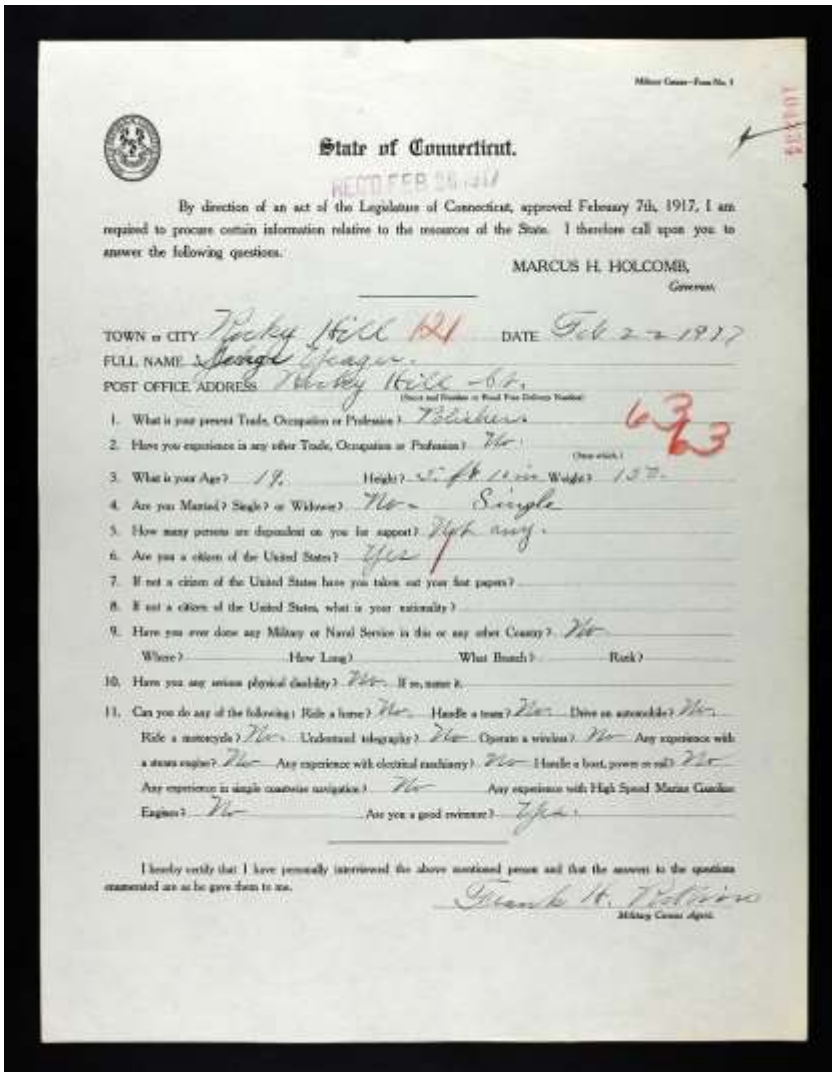 Military Census—Form No. 1
State of Connecticut.
REC'D FEB 26 1917
By direction of an act of the Legislature of Connecticut, approved February 7th, 1917, I am
required to procure certain information relative to the resources of the State. I therefore call upon you to
answer the following questions.
MARCUS H. HOLCOMB,
Governor.
TOWN or CITY Rocky Hill 121 DATE Feb 22 1917
FULL NAME George Yeager.
POST OFFICE ADDRESS Rocky Hill Ct.
(Street and Number or Rural Free Delivery Number)
1. What is your present Trade, Occupation or Profession? Polisher. 63
2. Have you experience in any other Trade, Occupation or Profession? No. 63
(State which.)
3. What is your Age? 19. Height? 5 ft 10 in Weight? 150.
4. Are you Married? Single? or Widower? No - Single
5. How many persons are dependent on you for support? Not any.
6. Are you a citizen of the United States? Yes
7. If not a citizen of the United States have you taken out your first papers?
8. If not a citizen of the United States, what is your nationality?
9. Have you ever done any Military or Naval Service in this or any other Country? No
Where? How Long? What Branch? Rank?
10. Have you any serious physical disability? No. If so, name it.
11. Can you do any of the following: Ride a horse? No. Handle a team? No. Drive an automobile? No.
Ride a motorcycle? No. Understand telegraphy? No Operate a wireless? No Any experience with
a steam engine? No Any experience with electrical machinery? No Handle a boat, power or sail? No
Any experience in simple coastwise navigation? No Any experience with High Speed Marine Gasoline
Engines? No Are you a good swimmer? Yes.
I hereby certify that I have personally interviewed the above mentioned person and that the answers to the questions
enumerated are as he gave them to me.
Frank H.
Military Census Agent.